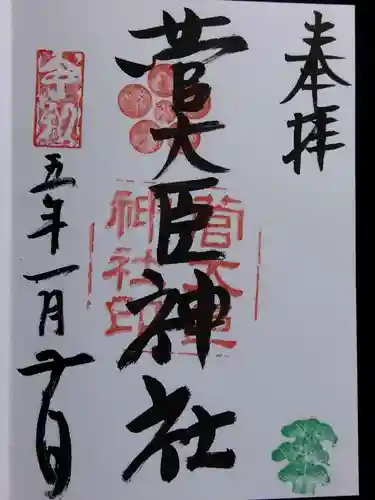 奉拝
菅大臣神社
菅大臣
神社印
五年一月十日